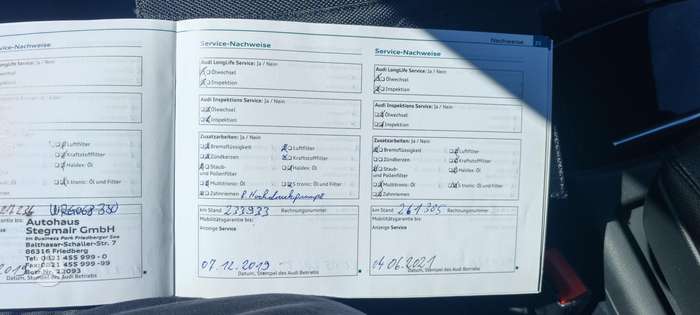 Service-Nachweise
Audi LongLife Service: Ja / Nein
Ölwechsel
Inspektion
Audi Inspektions Service: Ja / Nein
Ölwechsel
Inspektion
Zusatzarbeiten: Ja / Nein
Bremsflüssigkeit
Luftfilter
Zündkerzen
Kraftstofffilter
Staub-
und Pollenfilter
Haldex: Öl
Multitronic: Öl
S tronic: Öl und Filter
Zahnriemen
+ Hochdruckpumpe
km Stand 233933 Rechnungsnummer
Mobilitätsgarantie bis:
Anzeige Service
07.12.2019
Datum, Stempel des Audi Betriebs
Nachweise
Service-Nachweise
Audi LongLife Service: Ja / Nein
Ölwechsel
Inspektion
Audi Inspektions Service: Ja / Nein
Ölwechsel
Inspektion
Zusatzarbeiten: Ja / Nein
Bremsflüssigkeit
Luftfilter
Zündkerzen
Kraftstofffilter
Staub-
und Pollenfilter
Haldex: Öl
Multitronic: Öl
S tronic: Öl und Filter
Zahnriemen
km Stand 261305 Rechnungsnummer
Mobilitätsgarantie bis:
Anzeige Service
04.06.2021
Datum, Stempel des Audi Betriebs
Service-Nachweise
LongLife Service: Ja / Nein
Luftfilter
Kraftstofffilter
Haldex: Öl
S tronic: Öl und Filter
Autohaus
Stegmair GmbH
im Business Park Friedberger See
Balthasar-Schaller-Str. 7
86316 Friedberg
Tel: 0821 455 999 - 0
Fax: 0821 455 999 -99
Datum, Stempel des Audi Betriebs